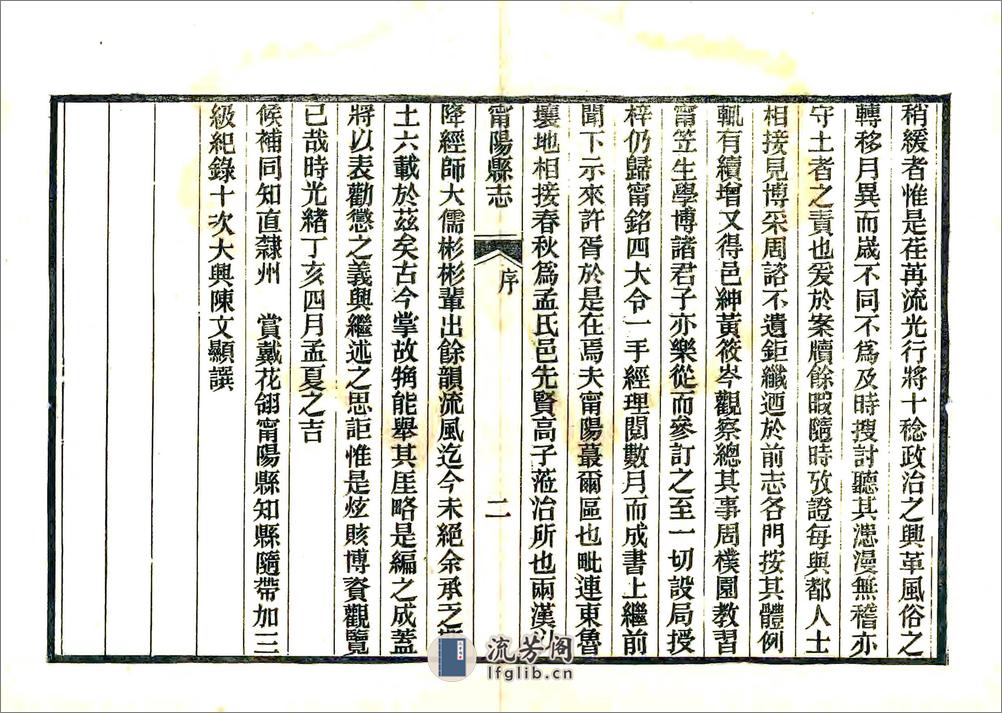 稍緩者惟是荏苒流光行將十稔政治之興革風俗之
轉移月異而歲不同不爲及時搜討聽其漶漫無稽亦
守土者之責也爰於案牘餘暇隨時攷證每與都人士
相接見博采周諮不遺鉅纖迺於前志各門按其體例
輒有續增又得邑紳黃筱岑觀察總其事周樸園教習
甯笠生學博諸君子亦樂從而參訂之至一切設局授
梓仍歸甯銘四大令一手經理閱數月而成書上繼前
聞下示來許胥於是在焉夫甯陽蕞爾區也毗連東魯
壤地相接春秋爲孟氏邑先賢高子蒞治所也兩漢
甯陽縣志
序
二
降經師大儒彬彬輩出餘韻流風迄今未絕余承乏
土六載於茲矣古今掌故犕能舉其厓略是編之成蓋
將以表勸懲之義興繼述之思詎惟是炫賅博資觀覽
已哉時光緒丁亥四月孟夏之吉
候補同知直隸州 賞戴花翎甯陽縣知縣隨帶加三
級紀錄十次大興陳文顯譔
流芳阁
lfglib.cn